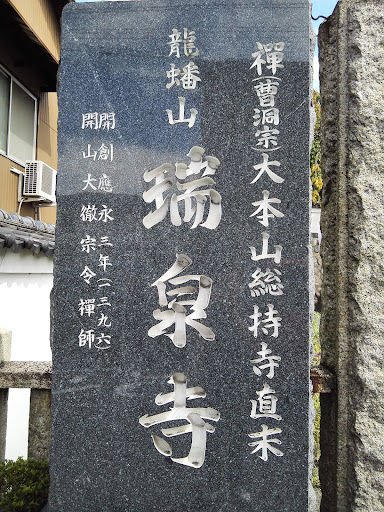 禪(曹洞宗)大本山総持寺直末
龍蟠山
瑞泉寺
開創應永三年(一三九六)
開山大徹宗令禪師